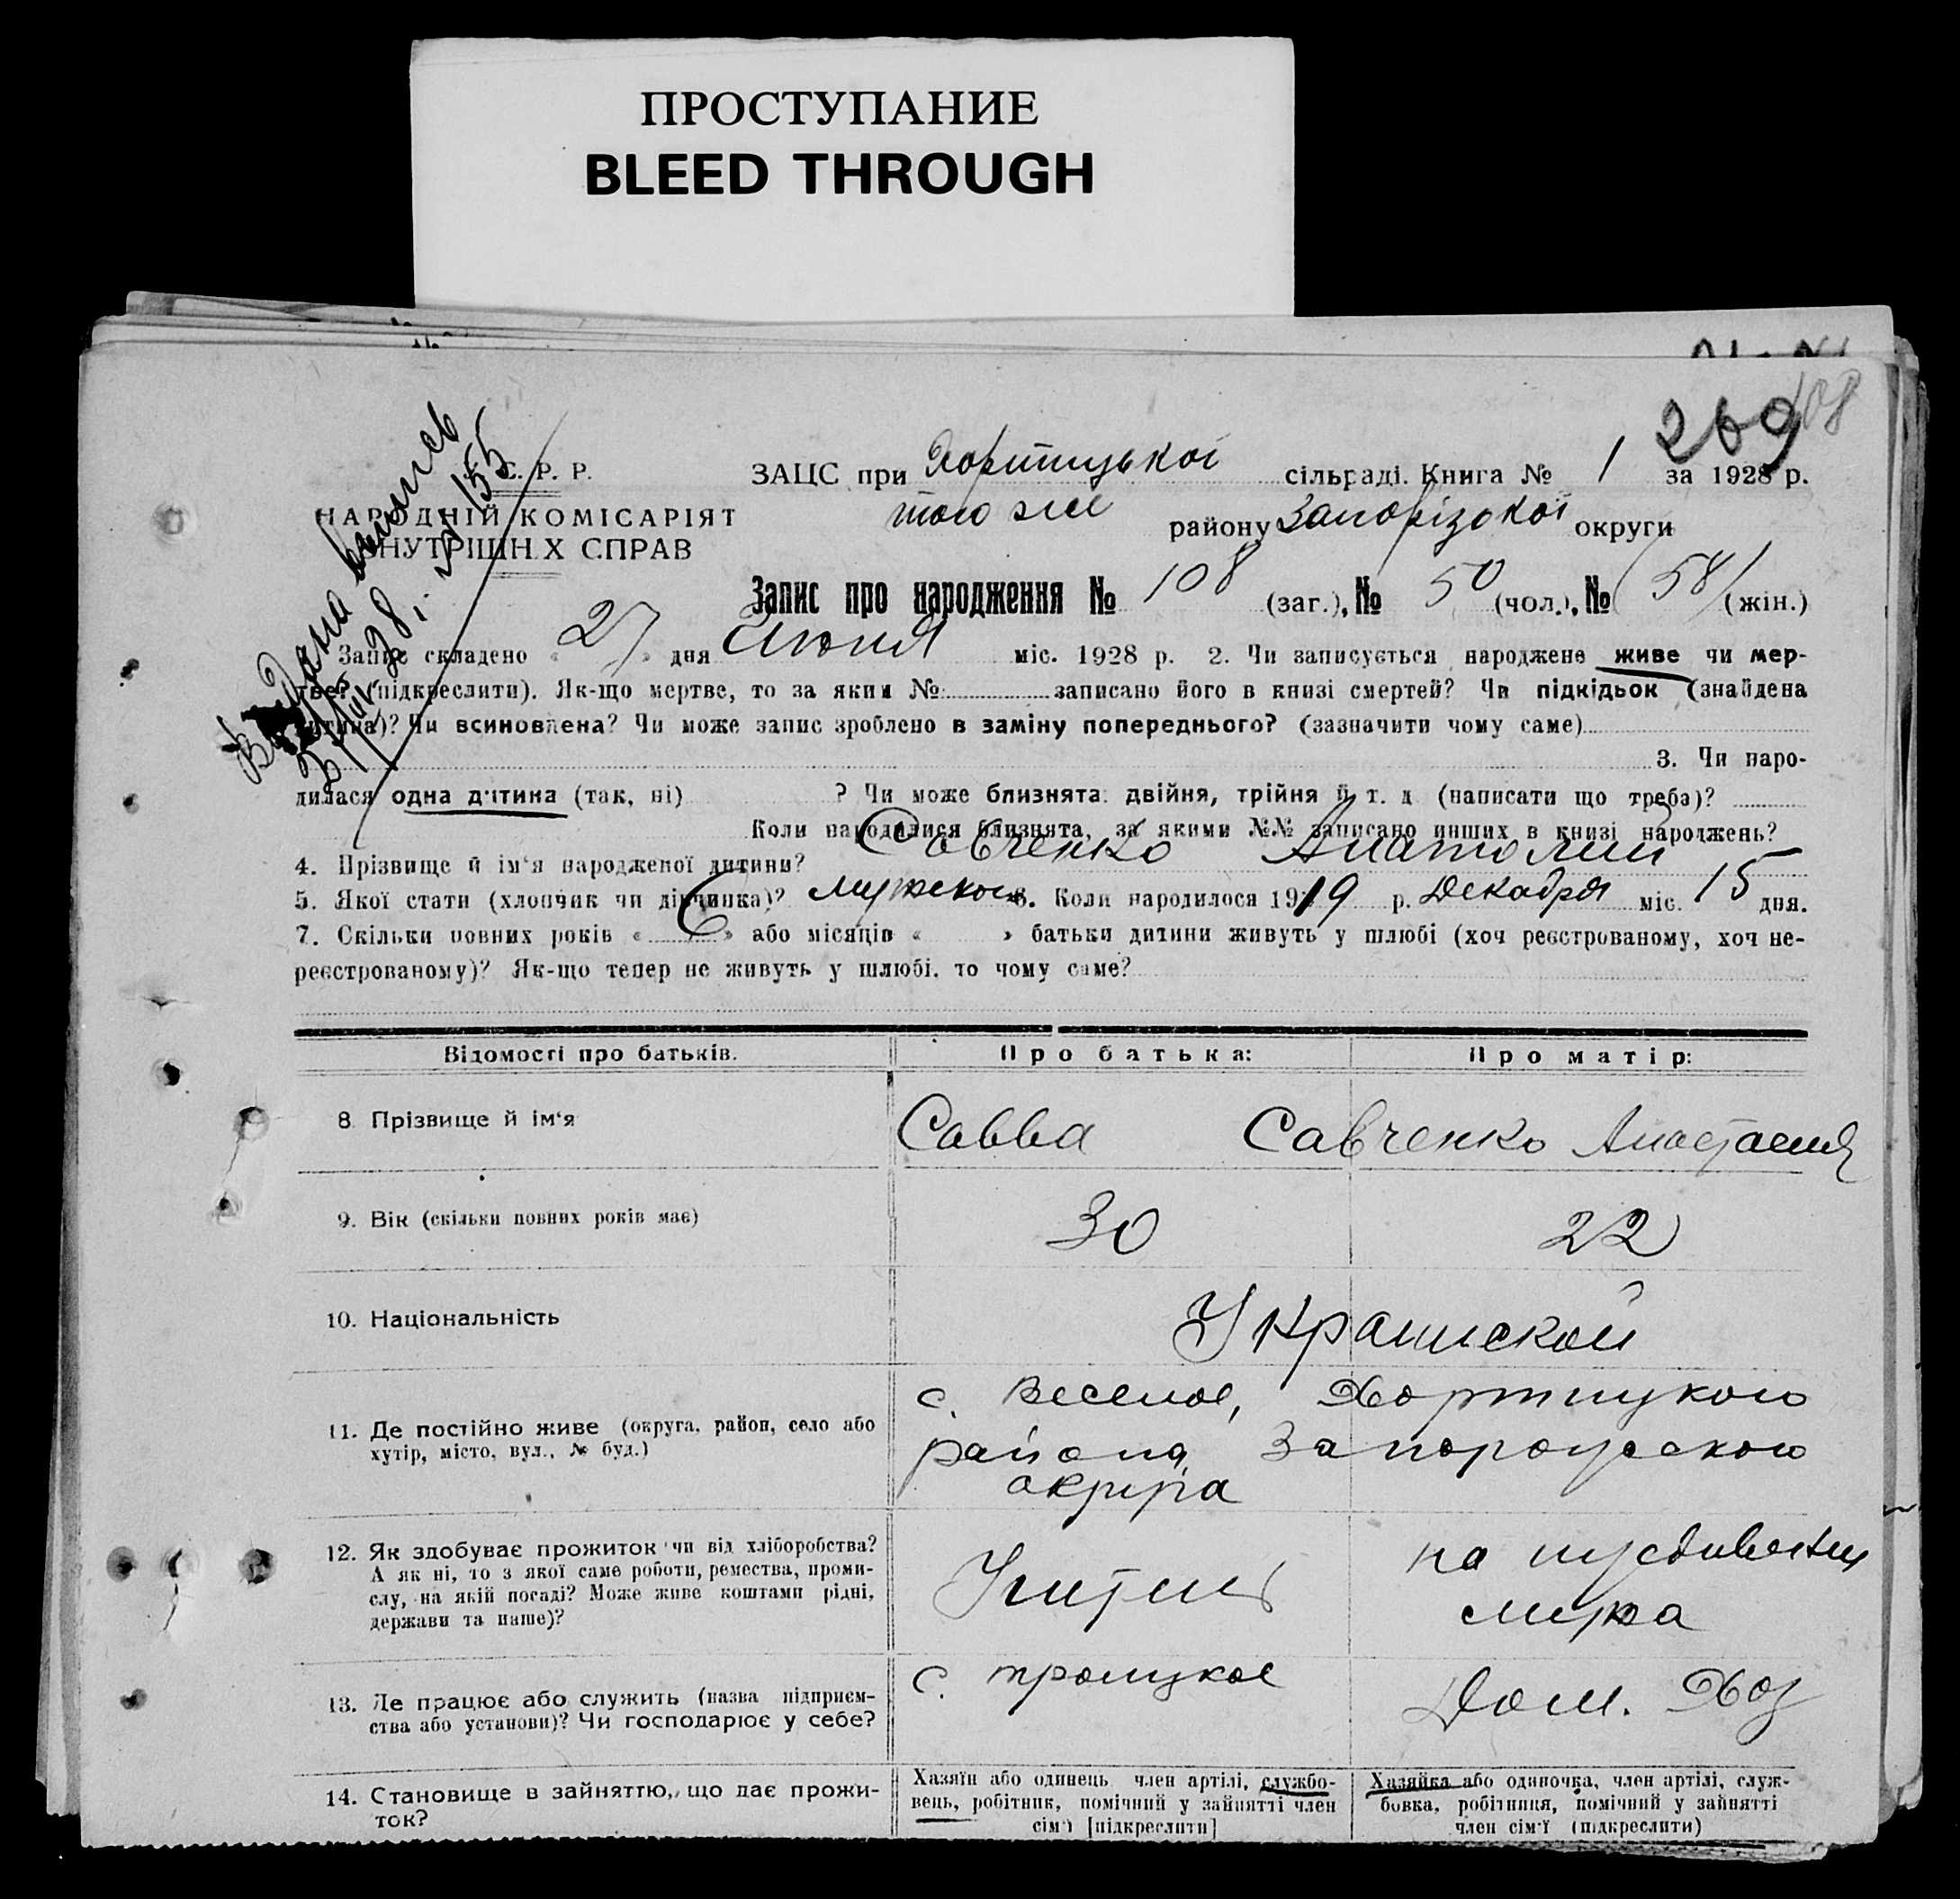 ПРОСТУПАНИЕ
BLEED THROUGH
269 108
С. Р. Р.
НАРОДНІЙ КОМІСАРІЯТ
ВНУТРІШН Х СПРАВ
Видана выпись
ЗАЦС при Хортицької сільраді. Книга № 1 за 1928 р.
того же району Запорізокої округи
Запис про народження № 108 (заг.), № 50 (чол.), № 58 (жін.)
Запис складено « 27 » дня Июня міс. 1928 р. 2. Чи записується народжене живе чи мер-
тве? (підкреслити). Як-що мертве, то за яким № записано його в книзі смертей? Чи підкідьок (знайдена
дитина)? Чи всиновлена? Чи може запис зроблено в заміну попереднього? (зазначити чому саме)
3. Чи наро-
дилася одна дитина (так, ні) ? Чи може близнята: двійня, трійня й т. д (написати що треба)?
Коли народилися близнята, за якими №№ записано инших в книзі народжень?
4. Прізвище й ім'я народженої дитини? Савченко Анатолий
5. Якої стати (хлопчик чи дівчинка)? мужской 6. Коли народилося 1919 р. Декабря міс. 15 дня.
7. Скільки повних років « 6 » або місяців « » батьки дитини живуть у шлюбі (хоч реєстрованому, хоч не-
реєстрованому)? Як-що тепер не живуть у шлюбі, то чому саме?
Відомості про батьків. Про батька: Про матір:
8. Прізвище й ім'я Савва Савченко Анастасия
9. Вік (скільки повних років має) 30 22
10. Національність Украинской
11. Де постійно живе (округа, район, село або
хутір, місто, вул., № буд.)
с. Веселое, Хортицкого
района Запорожского
округа
12. Як здобуває прожиток чи від хліборобства?
А як ні, то з якої саме роботи, ремества, проми-
слу, на якій посаді? Може живе коштами рідні,
держави та инше)?
Учитель
на иждивении
мужа
13. Де працює або служить (назва підприєм-
ства або установи)? Чи господарює у себе?
с. троицкое
Дом. Хоз
14. Становище в зайняттю, що дає прожи-
ток?
Хазяїн або одинець член артілі, службо-
вець, робітник, помічний у зайнятті член
сім'ї [підкреслити]
Хазяйка або одиночка, член артілі, служ-
бовка, робітниця, помічний у зайнятті
член сім'ї (підкреслити)